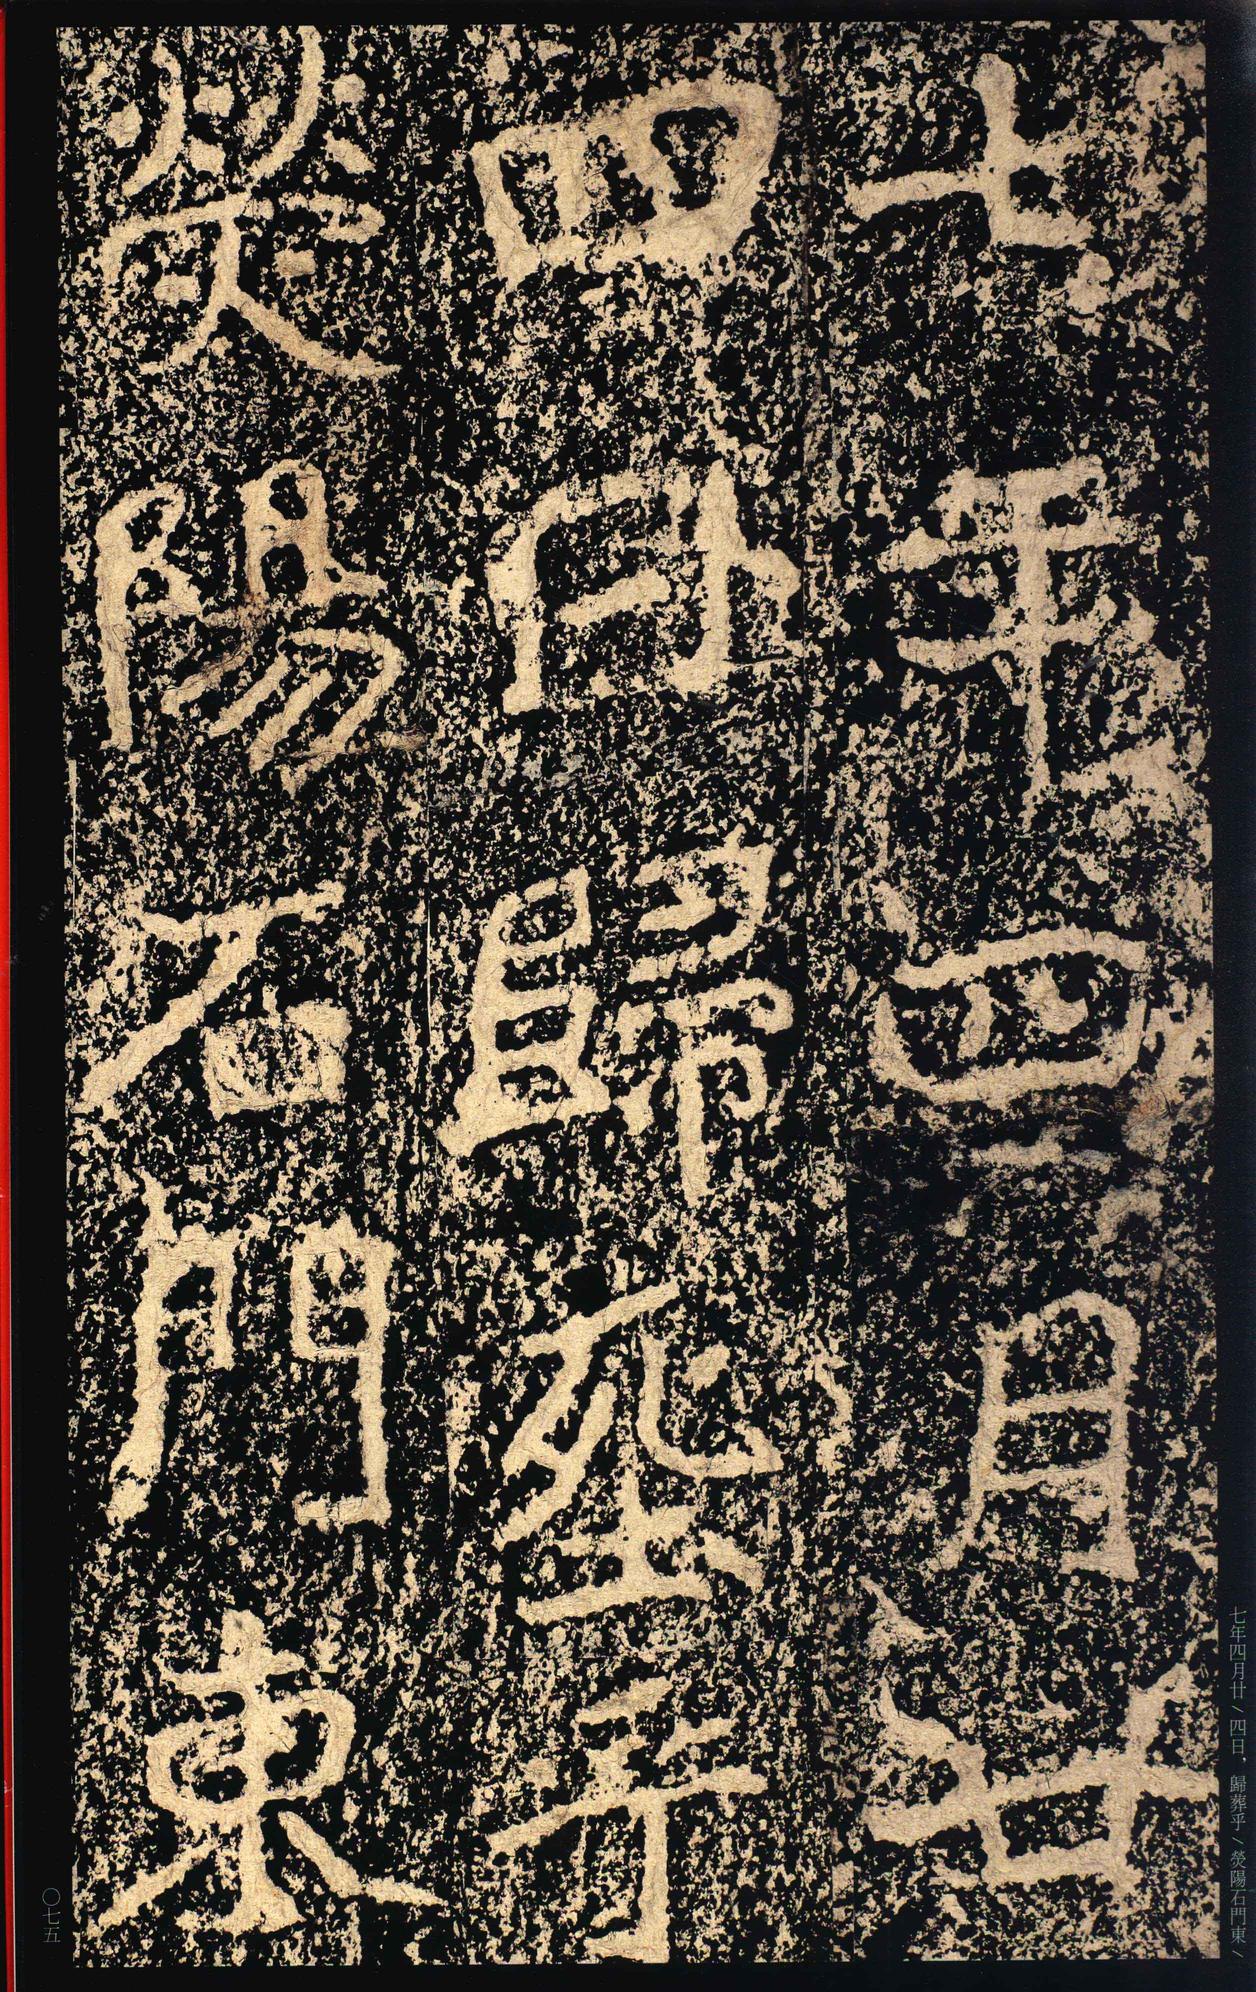 七年四月廿
四日歸葬乎
熒陽石門東
七年四月廿 \ 四日，歸葬乎 \ 熒陽石門東 \
〇七五